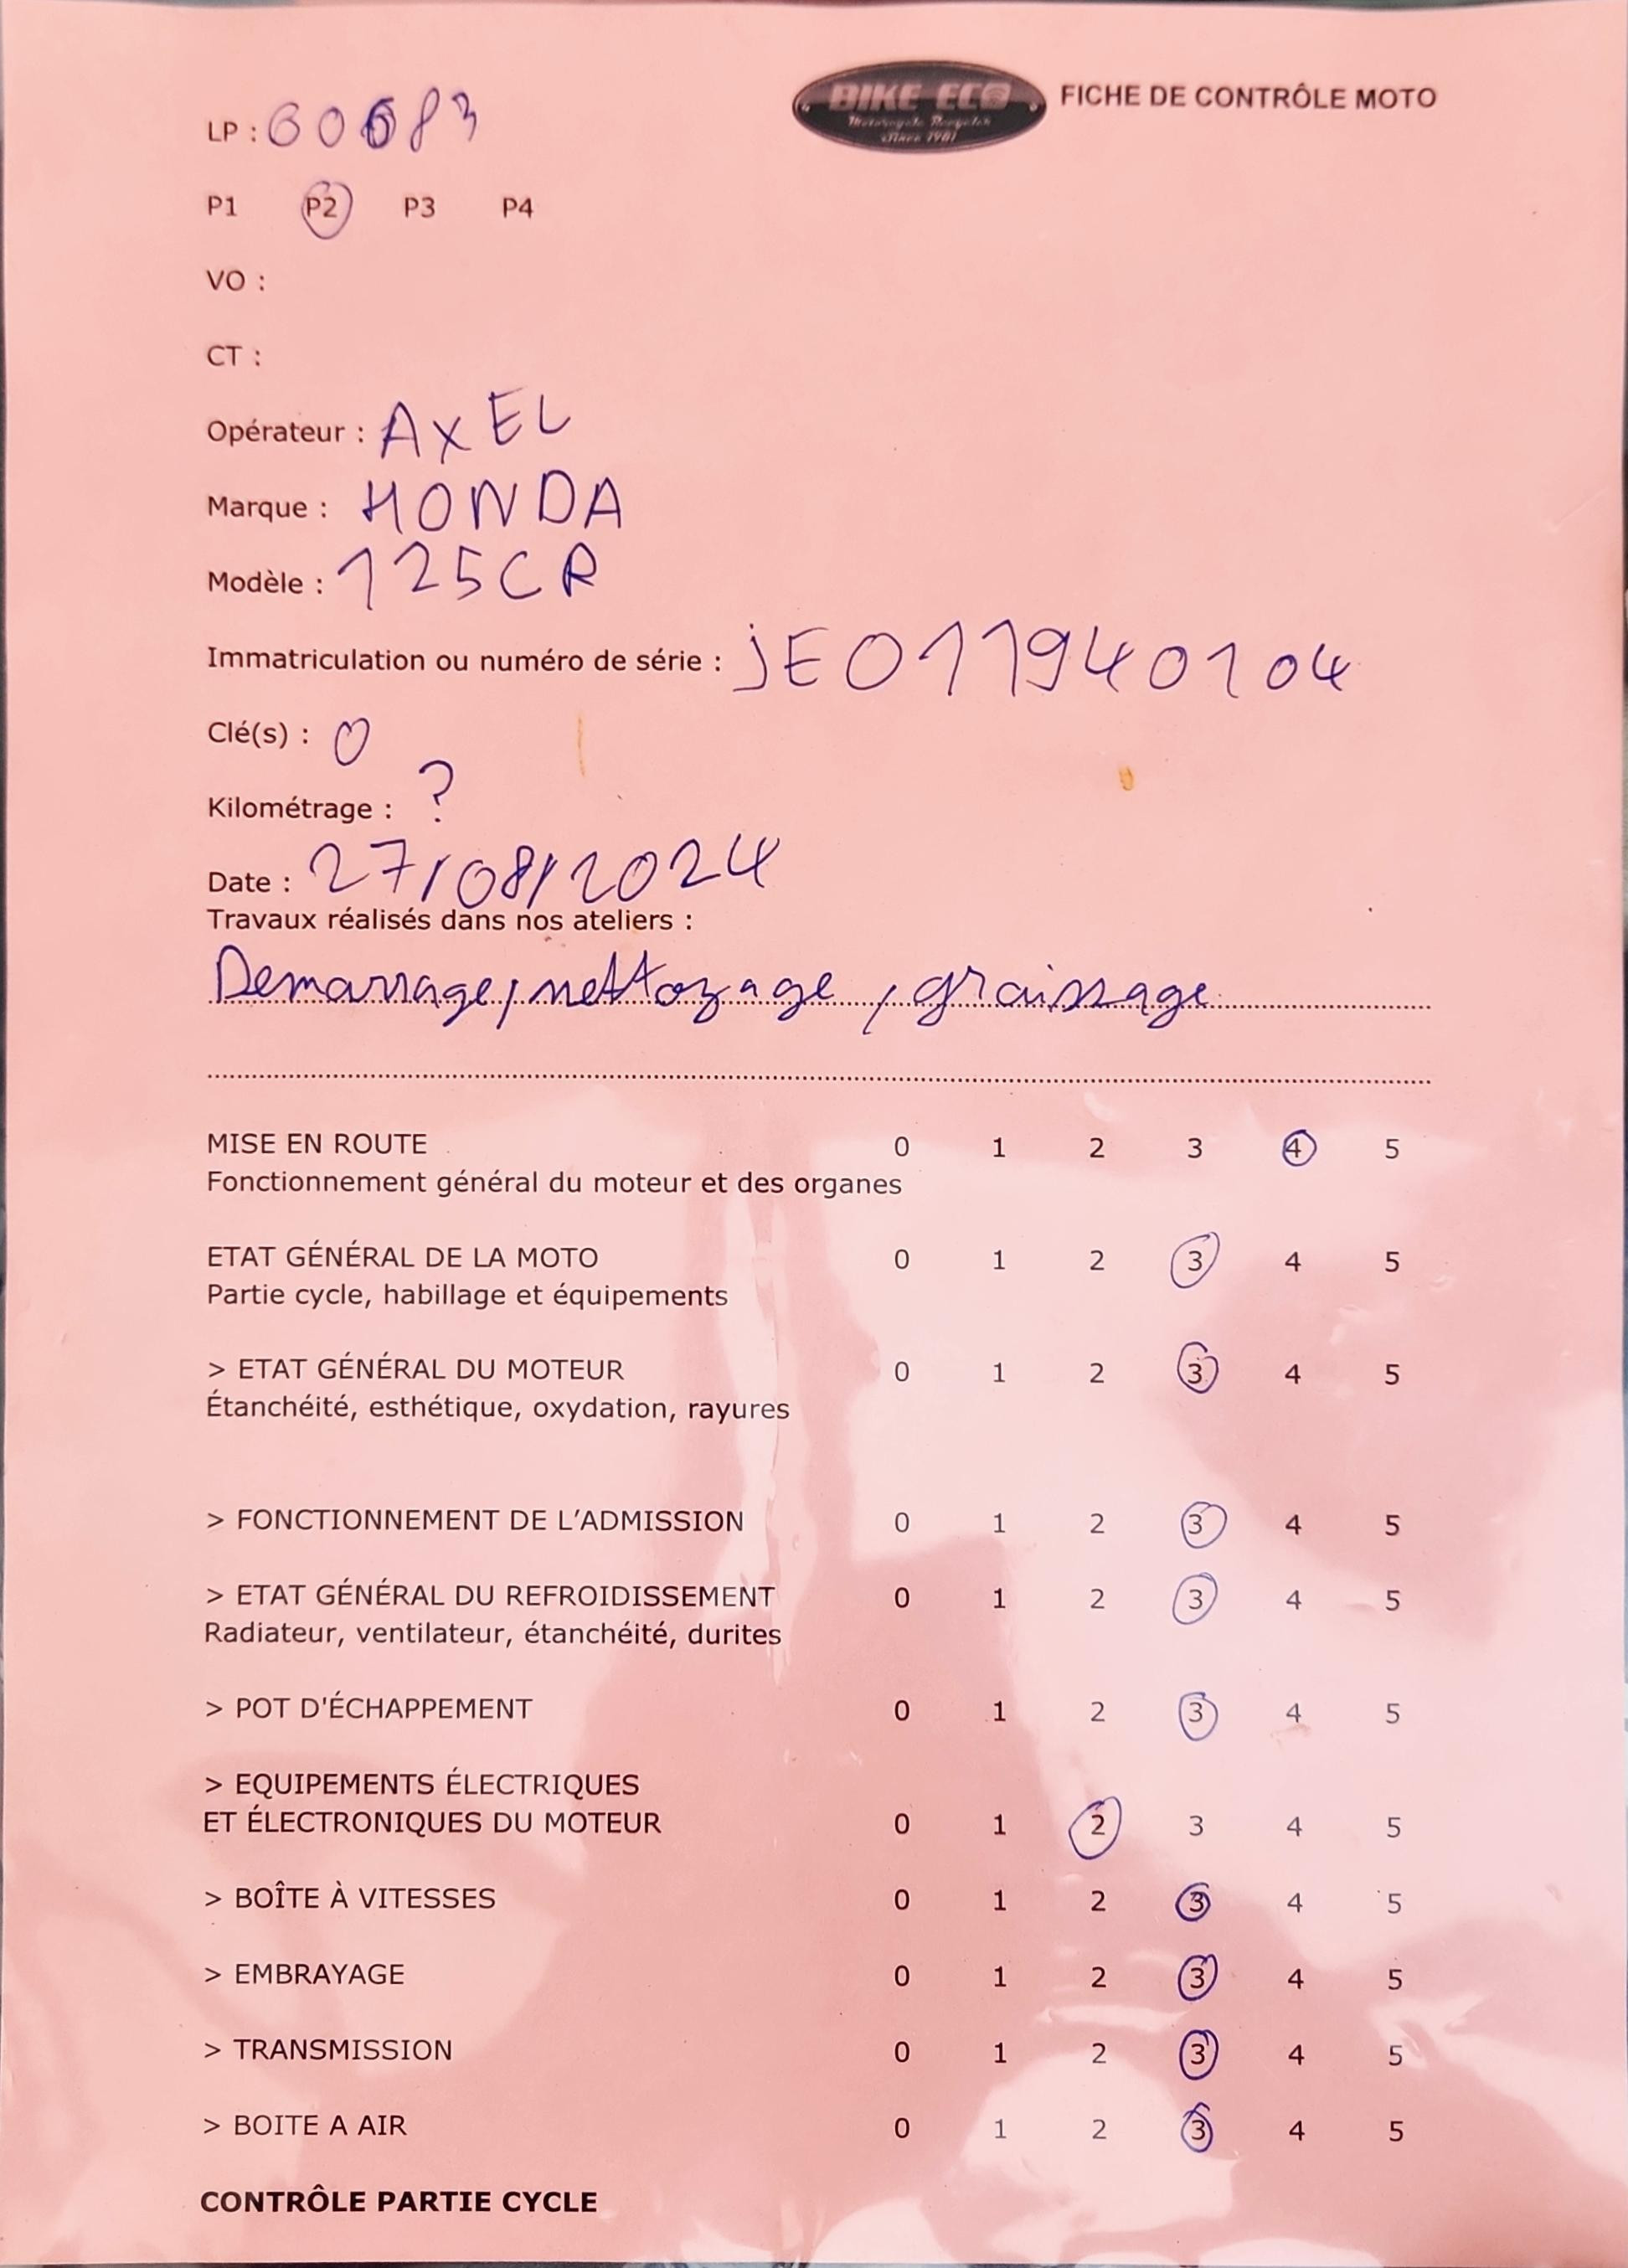 BIKE ECO
Motorcycle Recycler
Since 1981
FICHE DE CONTRÔLE MOTO
LP : 60683
P1 P2 P3 P4
VO :
CT :
Opérateur : AXEL
Marque : HONDA
Modèle : 125CR
Immatriculation ou numéro de série : jE011940104
Clé(s) : 0
Kilométrage : ?
Date : 27/08/2024
Travaux réalisés dans nos ateliers :
Demarrage, nettoyage, graissage
MISE EN ROUTE 0 1 2 3 4 5
Fonctionnement général du moteur et des organes
ETAT GÉNÉRAL DE LA MOTO 0 1 2 3 4 5
Partie cycle, habillage et équipements
> ETAT GÉNÉRAL DU MOTEUR 0 1 2 3 4 5
Étanchéité, esthétique, oxydation, rayures
> FONCTIONNEMENT DE L'ADMISSION 0 1 2 3 4 5
> ETAT GÉNÉRAL DU REFROIDISSEMENT 0 1 2 3 4 5
Radiateur, ventilateur, étanchéité, durites
> POT D'ÉCHAPPEMENT 0 1 2 3 4 5
> EQUIPEMENTS ÉLECTRIQUES
ET ÉLECTRONIQUES DU MOTEUR 0 1 2 3 4 5
> BOÎTE À VITESSES 0 1 2 3 4 5
> EMBRAYAGE 0 1 2 3 4 5
> TRANSMISSION 0 1 2 3 4 5
> BOITE A AIR 0 1 2 3 4 5
CONTRÔLE PARTIE CYCLE